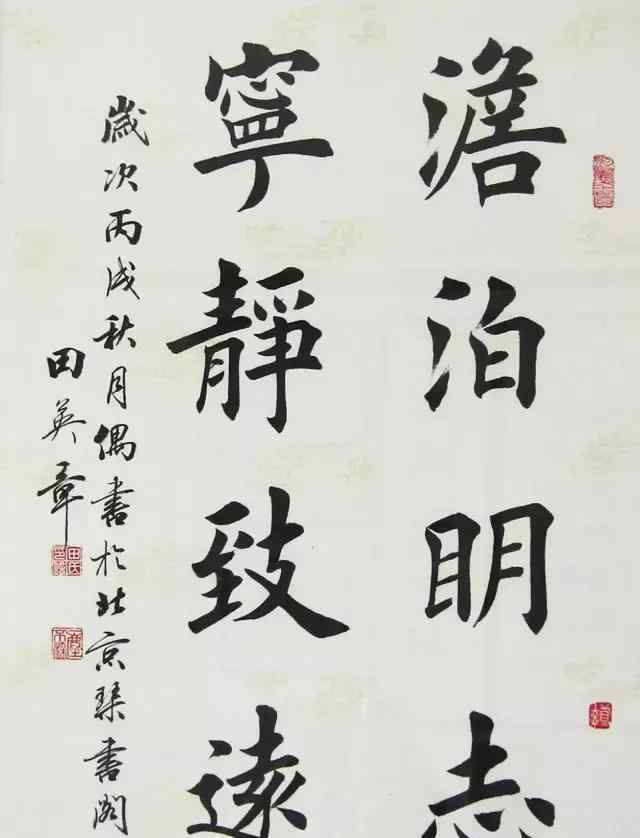 澹泊明志
寧靜致遠
歲次丙戌秋月偶書於北京琴書閣
田英章